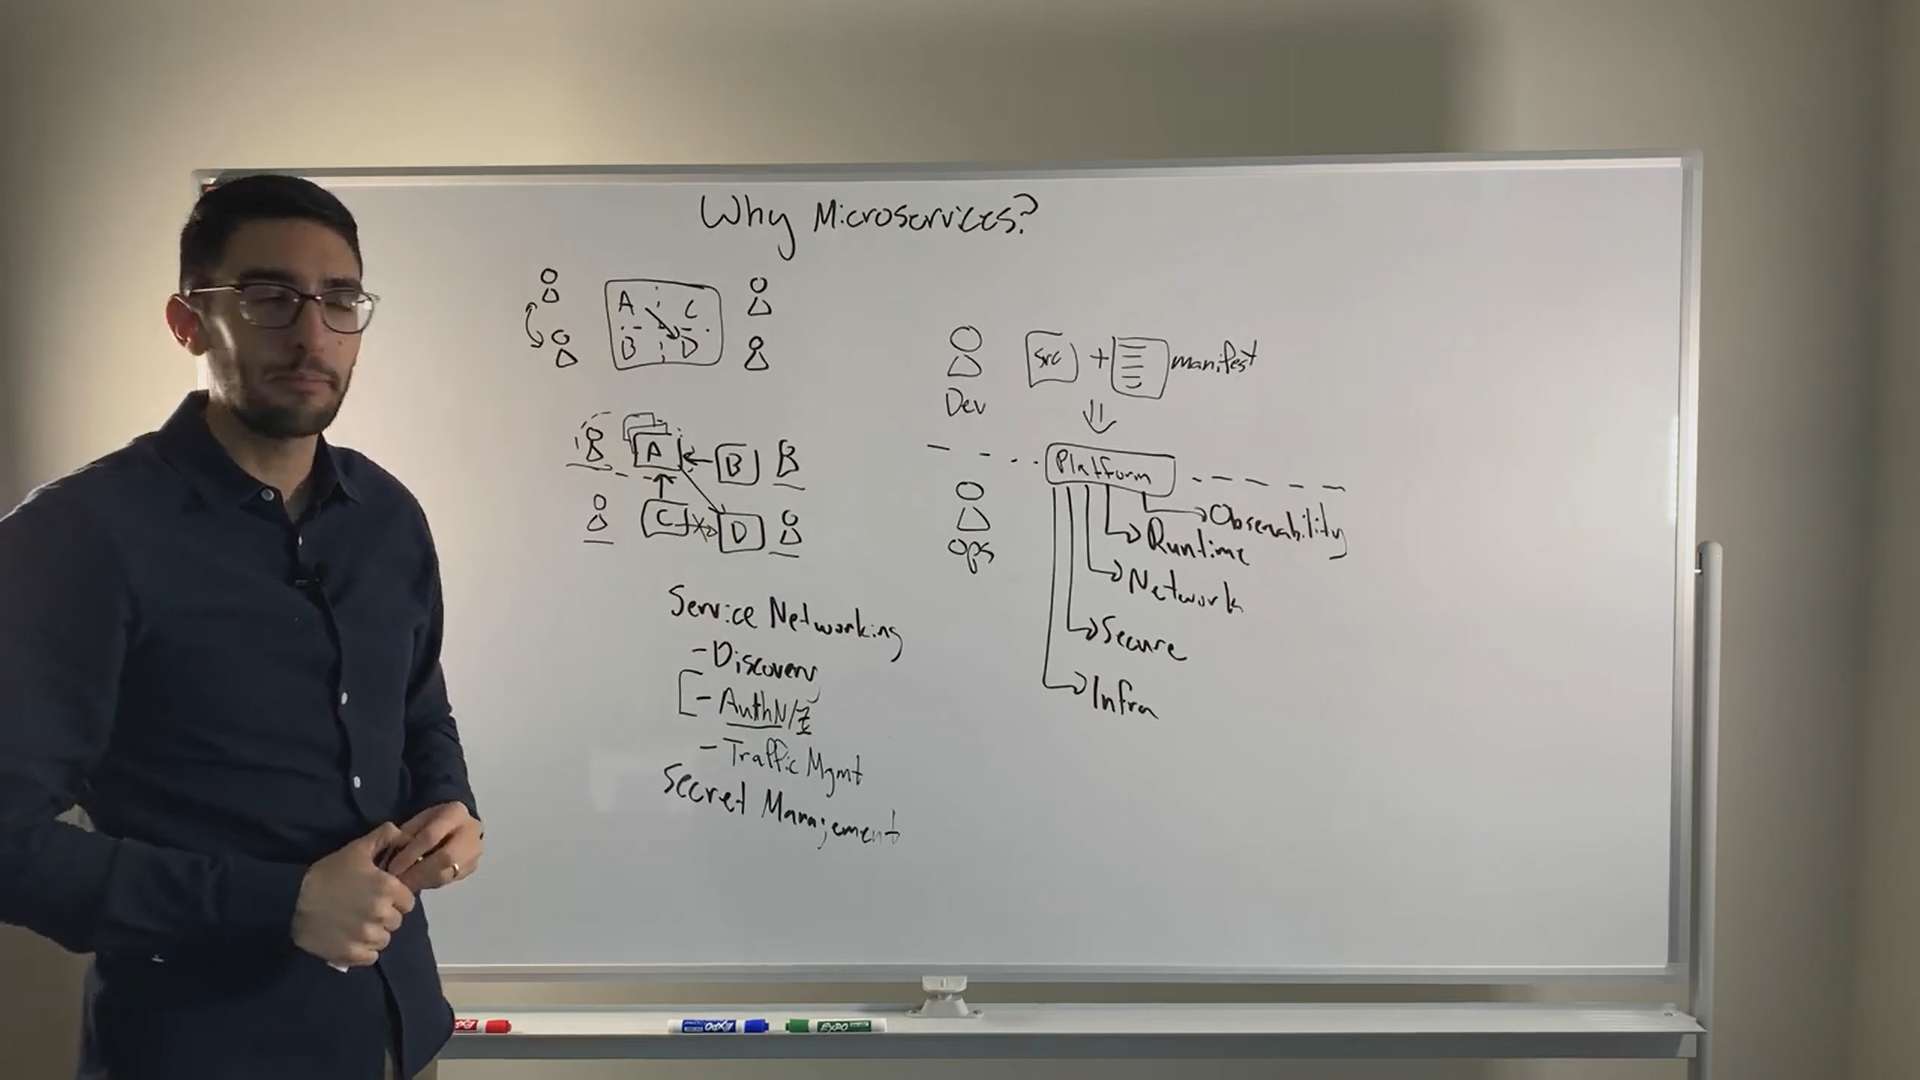 Why Microservices?
A C
B D
A B
C D
Service Networking
- Discovery
- AuthN/Z
- Traffic Mgmt
Secret Management
src + manifest
Dev
Platform
Ops
Observability
Runtime
Network
Secure
Infra
EXPO
EXPO
EXPO